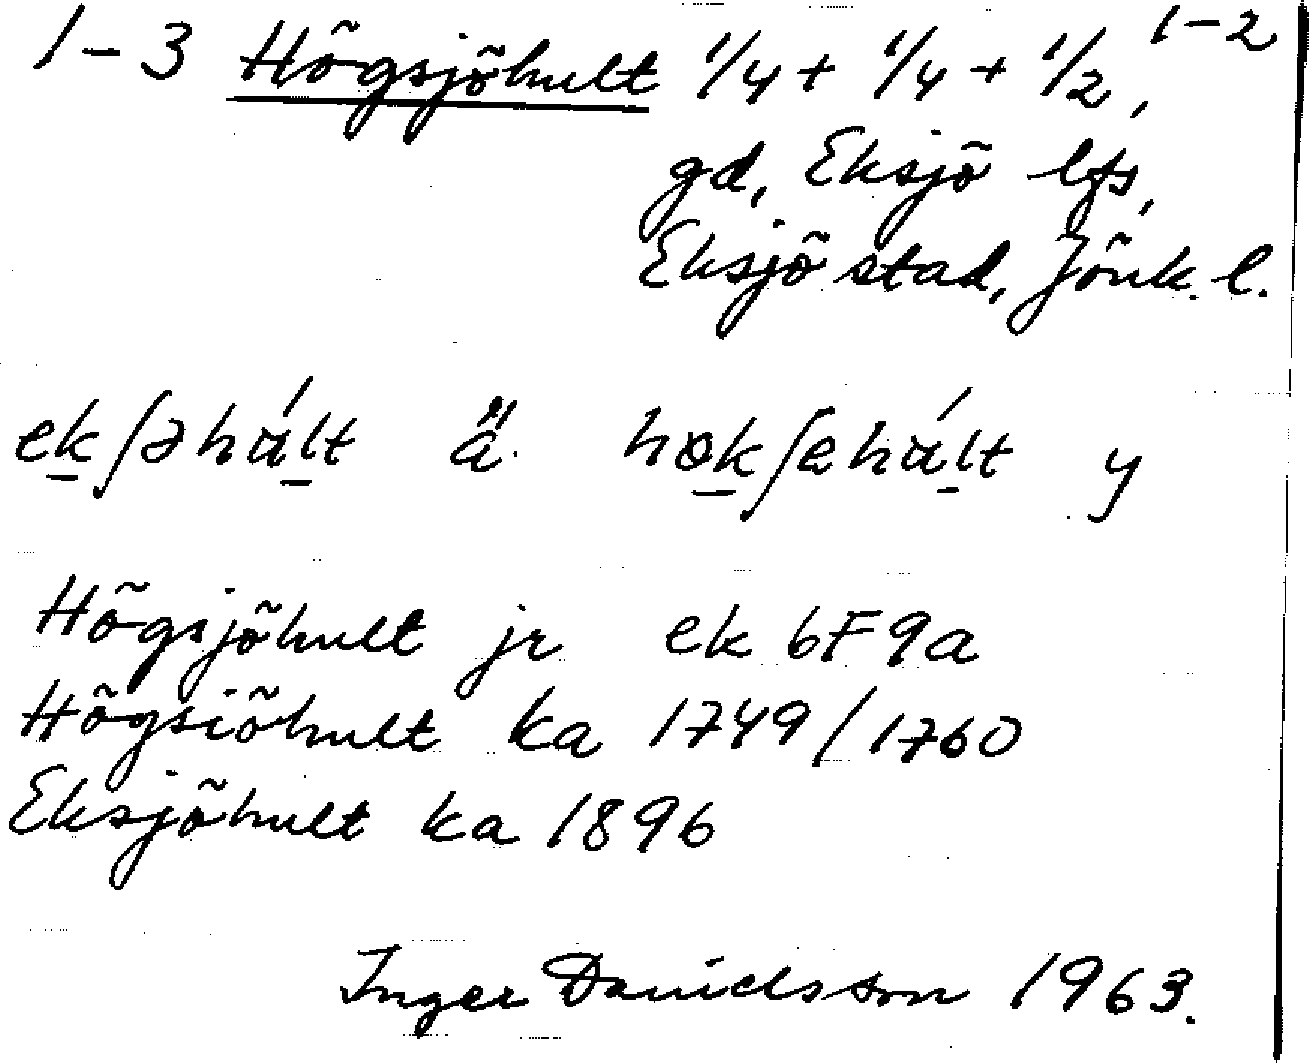 1-3 Högsjöhult 1/4 + 1/4 + 1/2, 1-2
gd, Eksjö lfs,
Eksjö stad, Jönk. l.
ekʃəhált ä. høkʃəhált y
Högsjöhult jr ek 6F9a
Högsiöhult ka 1749/1760
Eksjöhult ka 1896
Inger Danielsson 1963.